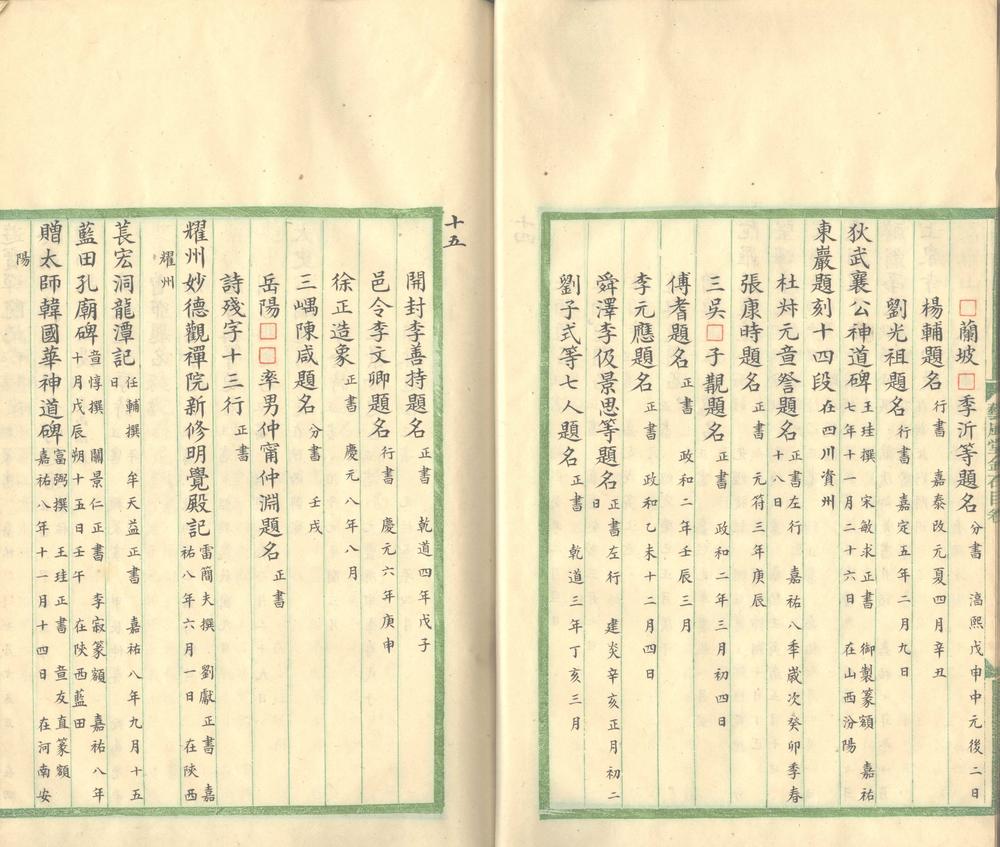 □蘭坡□季沂等題名 分書 淳熙戊申中元後二日
楊輔題名 行書 嘉泰改元夏四月辛丑
劉光祖題名 行書 嘉定五年二月九日
狄武襄公神道碑 王珪撰 宋敏求正書 御製篆額 嘉祐七年十一月二十六日 在山西汾陽
東巖題刻十四段 在四川資州
杜叔元等題名 正書左行 嘉祐八季歲次癸卯季春十八日
張康時題名 正書 元符三年庚辰
三吳□子覯題名 正書 政和二年三月初四日
傅耆題名 正書 政和二年壬辰三月
李元應題名 正書 政和乙未十二月四日
舜澤李伋景思等題名 正書左行 建炎辛亥正月初二日
劉子式等七人題名 正書 乾道三年丁亥三月
十五
開封李善持題名 正書 乾道四年戊子
邑令李文卿題名 行書 慶元六年庚申
徐正造象 正書 慶元八年八月
三嵎陳咸題名 分書 壬戌
岳陽□□率男仲甯仲淵題名 正書
詩殘字十三行 正書
耀州妙德觀禪院新修明覺殿記 雷簡夫撰 劉獻正書 嘉祐八年六月一日 在陝西
耀州
萇宏洞龍潭記 任輔撰 牟天益正書 嘉祐八年九月十五日
藍田孔廟碑 章惇撰 關景仁正書 李寂篆額 嘉祐八年十月戊辰朔十五日壬午 在陝西藍田
贈太師韓國華神道碑 富弼撰 王珪正書 章友直篆額 嘉祐八年十一月十四日 在河南安
陽